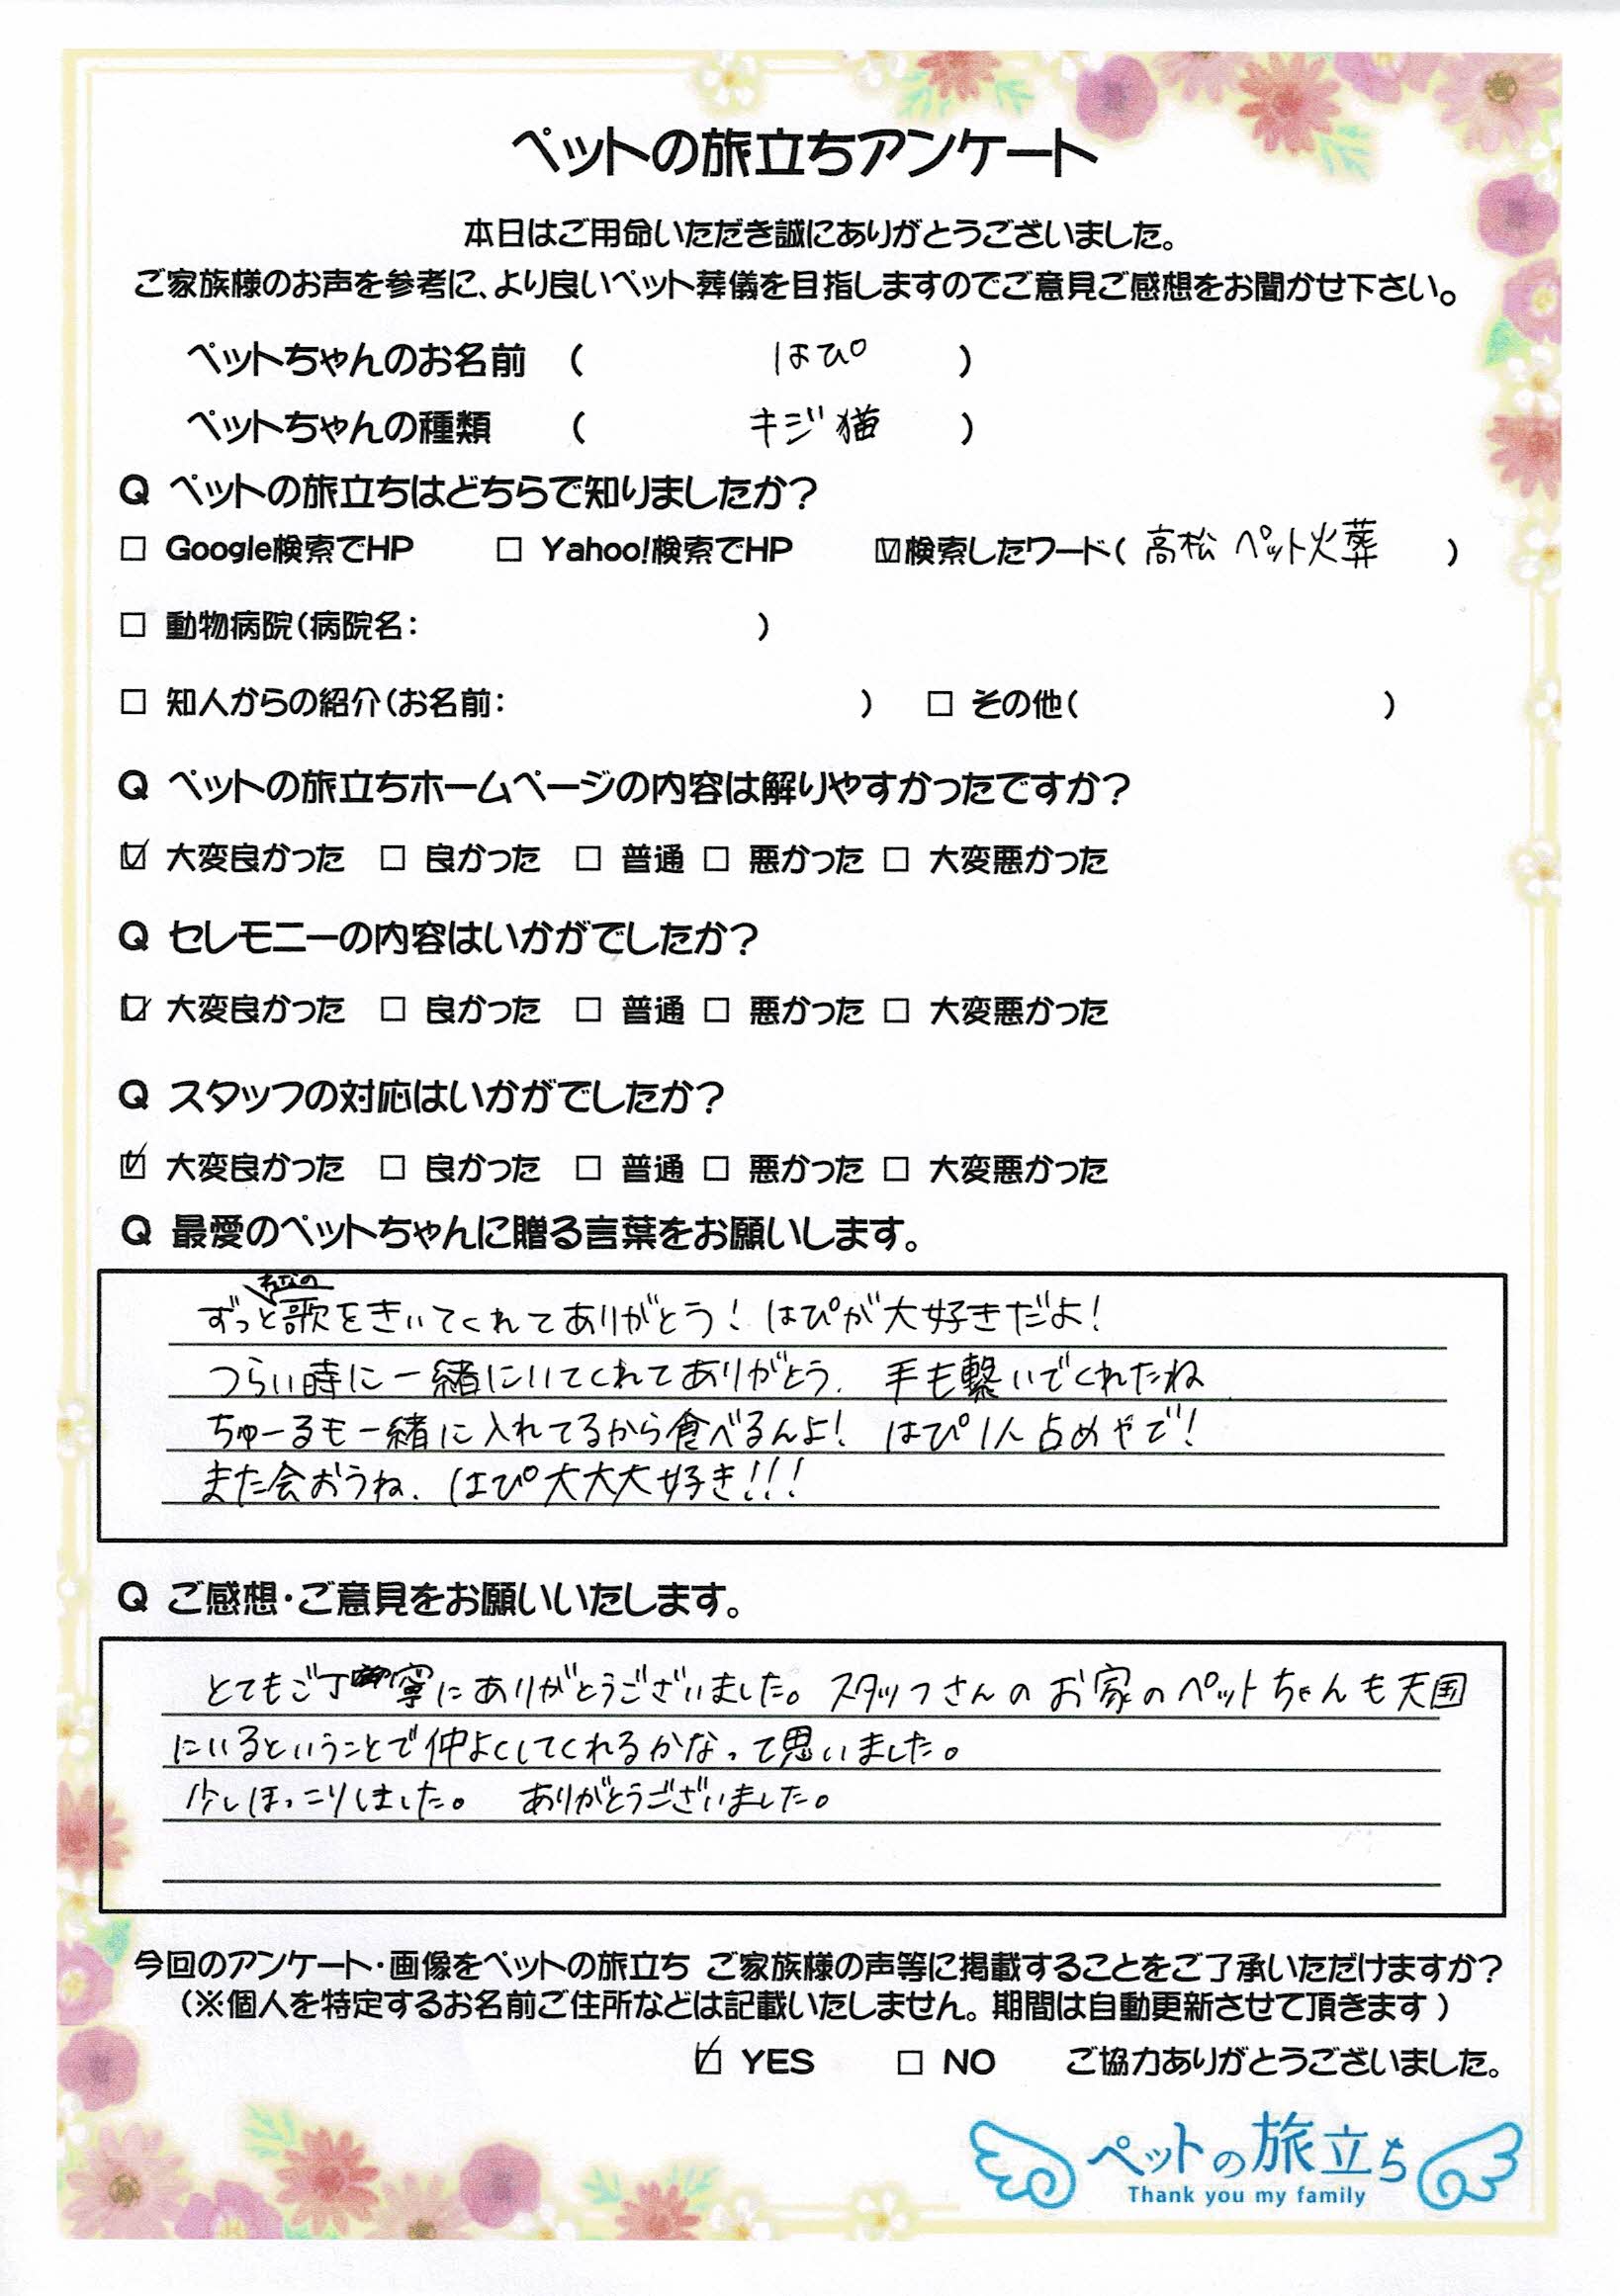 ペットの旅立ちアンケート
本日はご用命いただき誠にありがとうございました。
ご家族様のお声を参考に、より良いペット葬儀を目指しますのでご意見ご感想をお聞かせ下さい。
ペットちゃんのお名前 ( はぴ )
ペットちゃんの種類 ( キジ猫 )
Q ペットの旅立ちはどちらで知りましたか?
□ Google検索でHP □ Yahoo!検索でHP ☑検索したワード( 高松 ペット火葬 )
□ 動物病院(病院名: )
□ 知人からの紹介(お名前: ) □ その他( )
Q ペットの旅立ちホームページの内容は解りやすかったですか?
☑ 大変良かった □ 良かった □ 普通 □ 悪かった □ 大変悪かった
Q セレモニーの内容はいかがでしたか?
☑ 大変良かった □ 良かった □ 普通 □ 悪かった □ 大変悪かった
Q スタッフの対応はいかがでしたか?
☑ 大変良かった □ 良かった □ 普通 □ 悪かった □ 大変悪かった
Q 最愛のペットちゃんに贈る言葉をお願いします。
ずっと歌をきいてくれてありがとう! はぴが大好きだよ!
つらい時に一緒にいてくれてありがとう. 手も繋いでくれたね
ちゅーるも一緒に入れてるから食べるんよ! はぴ1人占めやで!
また会おうね. はぴ大大大好き!!!
Q ご感想・ご意見をお願いいたします。
とてもご丁寧にありがとうございました。スタッフさんのお家のペットちゃんも天国
にいるということで仲よくしてくれるかなって思いました。
少しほっこりしました。 ありがとうございました。
今回のアンケート・画像をペットの旅立ち ご家族様の声等に掲載することをご了承いただけますか?
(※個人を特定するお名前ご住所などは記載いたしません。期間は自動更新させて頂きます)
☑ YES □ NO ご協力ありがとうございました。
ペットの旅立ち
Thank you my family